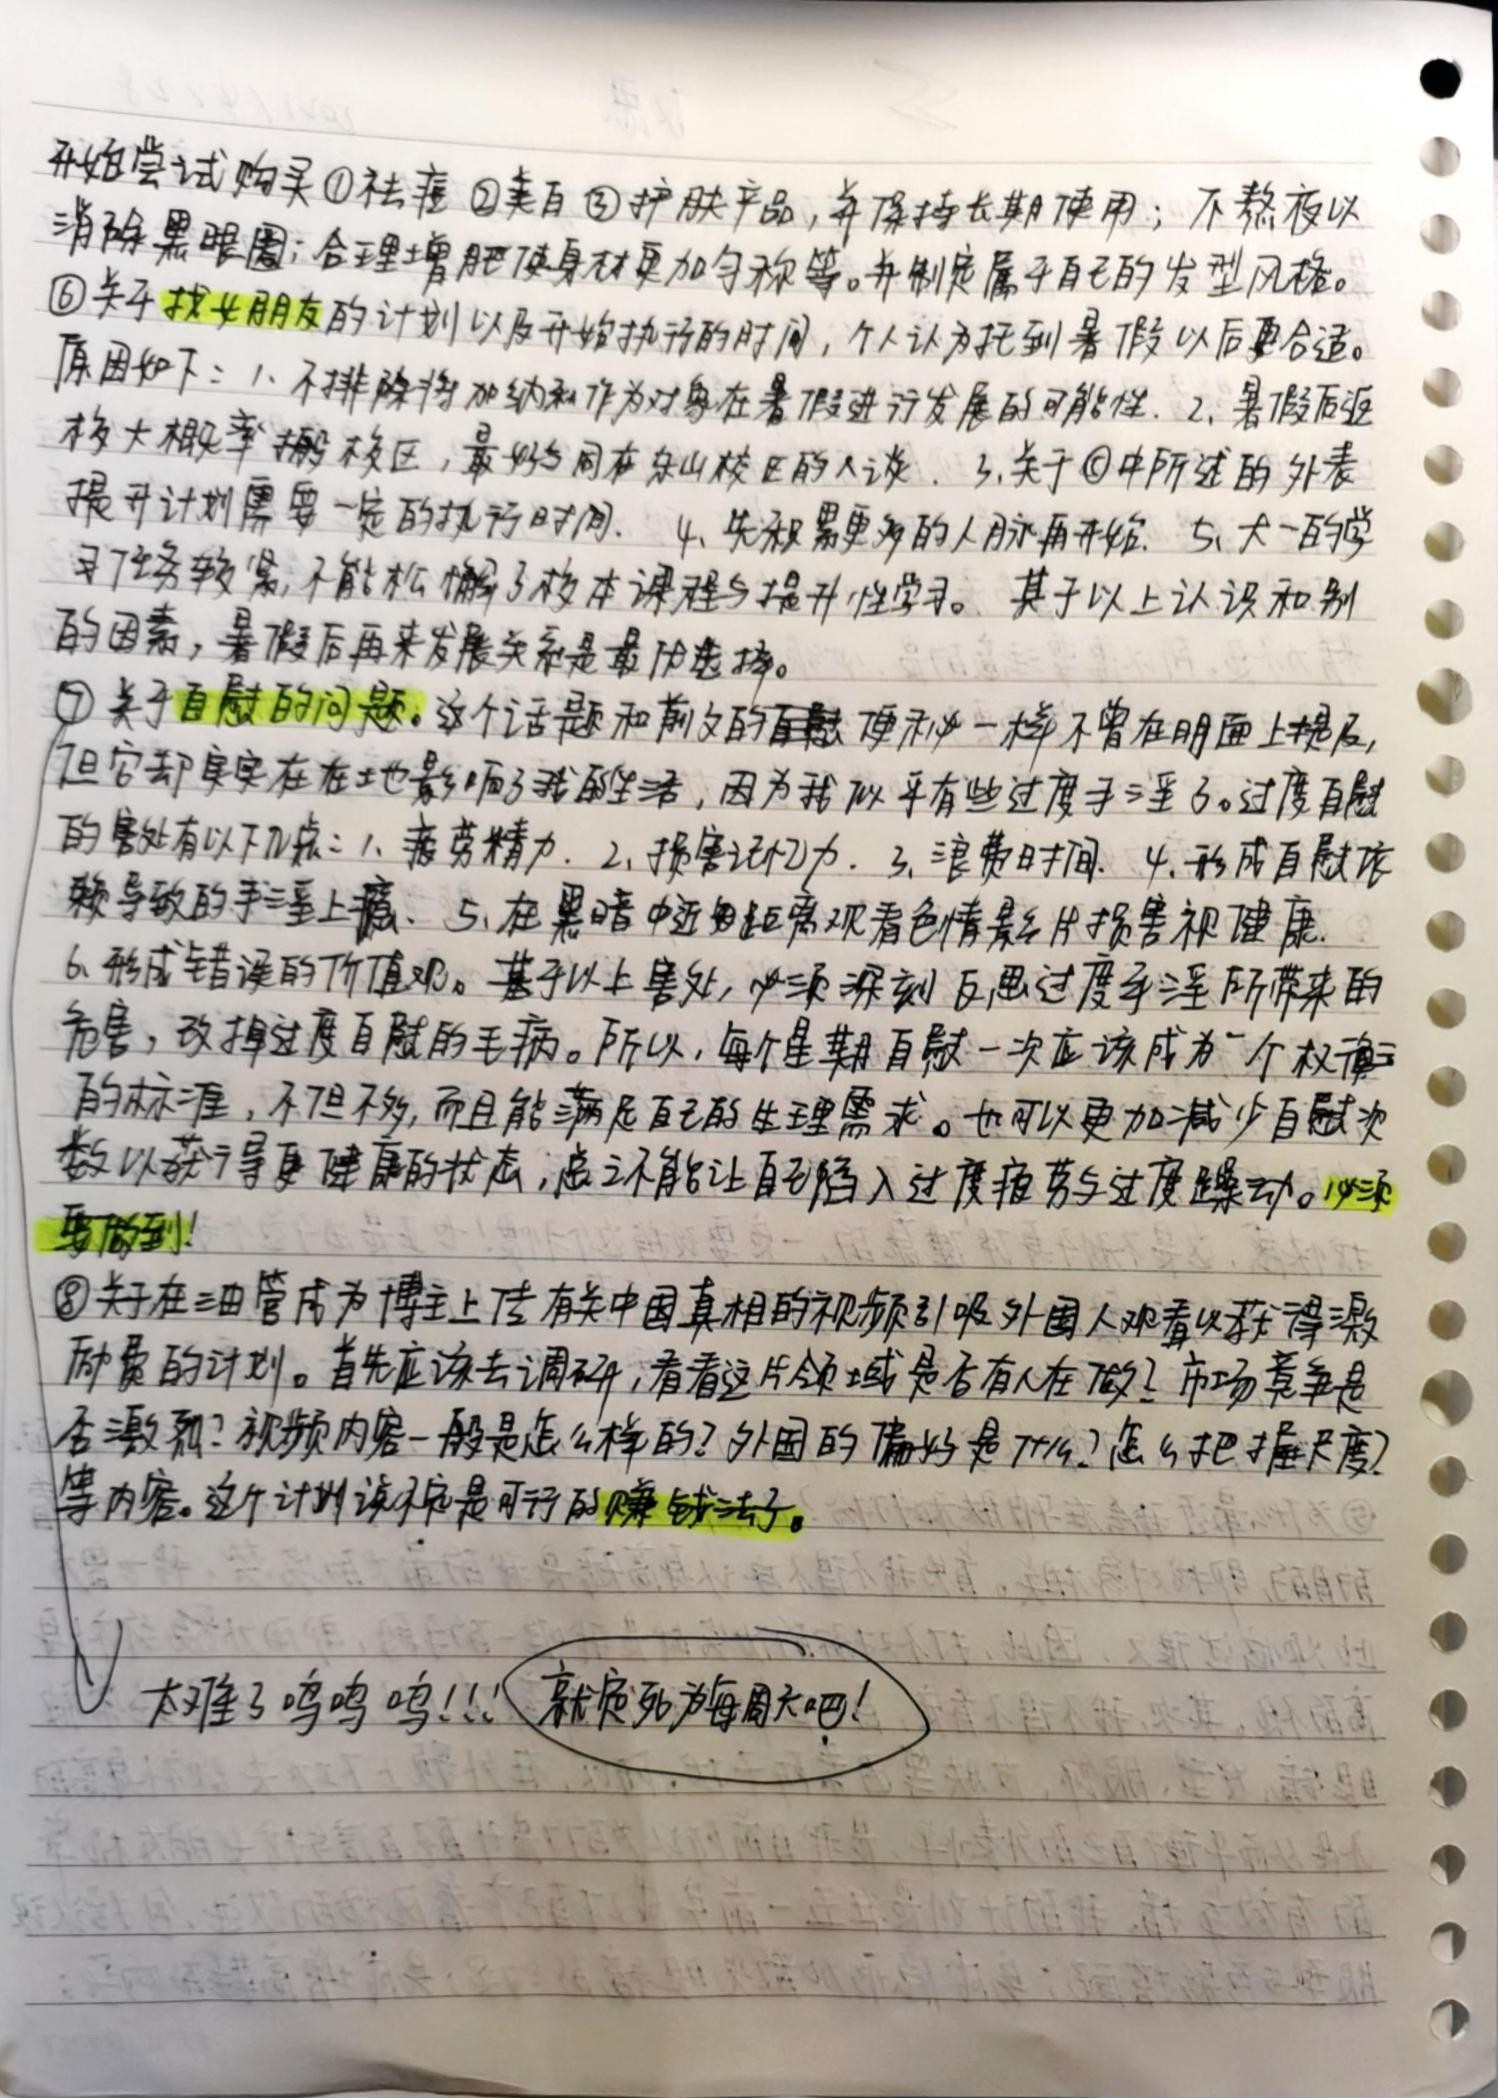 开始尝试购买①祛痘②美白③护肤产品，并保持长期使用；不熬夜以
消除黑眼圈；合理增肥使身材更加匀称等。并制定属于自己的发型风格。
⑥关于找女朋友的计划以及开始执行的时间，个人认为托到暑假以后更合适。
原因如下：1、不排除将加纳和作为对象在暑假进行发展的可能性. 2、暑假后返
校大概率搬校区，最好与同在东山校区的人谈. 3、关于⑥中所述的外表
提升计划需要一定的执行时间. 4、先积累更多的人脉再开始. 5、大一的学
习任务较紧，不能松懈了校本课程与提升性学习。 其于以上认识和别
的因素，暑假后再来发展关系是最优选择。
⑦关于自慰的问题。这个话题和前文的便秘一样不曾在明面上提及，
但它却实实在在地影响了我的生活，因为我似乎有些过度手淫了。过度自慰
的害处有以下几点：1、疲劳精力. 2、损害记忆力. 3、浪费时间. 4、形成自慰依
赖导致的手淫上瘾. 5、在黑暗中近距离观看色情影片损害视健康.
6、形成错误的价值观。基于以上害处，必须深刻反思过度手淫所带来的
危害，改掉过度自慰的毛病。所以，每个星期自慰一次应该成为一个权衡
的标准，不但不多，而且能满足自己的生理需求。也可以更加减少自慰次
数以获得更健康的状态，总之不能让自己陷入过度疲劳与过度躁动。必须
要做到！
⑧关于在油管成为博主上传有关中国真相的视频引吸外国人观看以获得激
励费的计划。首先应该去调研，看看这片领域是否有人在做？市场竞争是
否激烈？视频内容一般是怎么样的？外国的偏好是什么？怎么把握尺度？
等内容。这个计划说不定是可行的赚钱法子。
太难了呜呜呜！！！ 就定死为每周天吧！